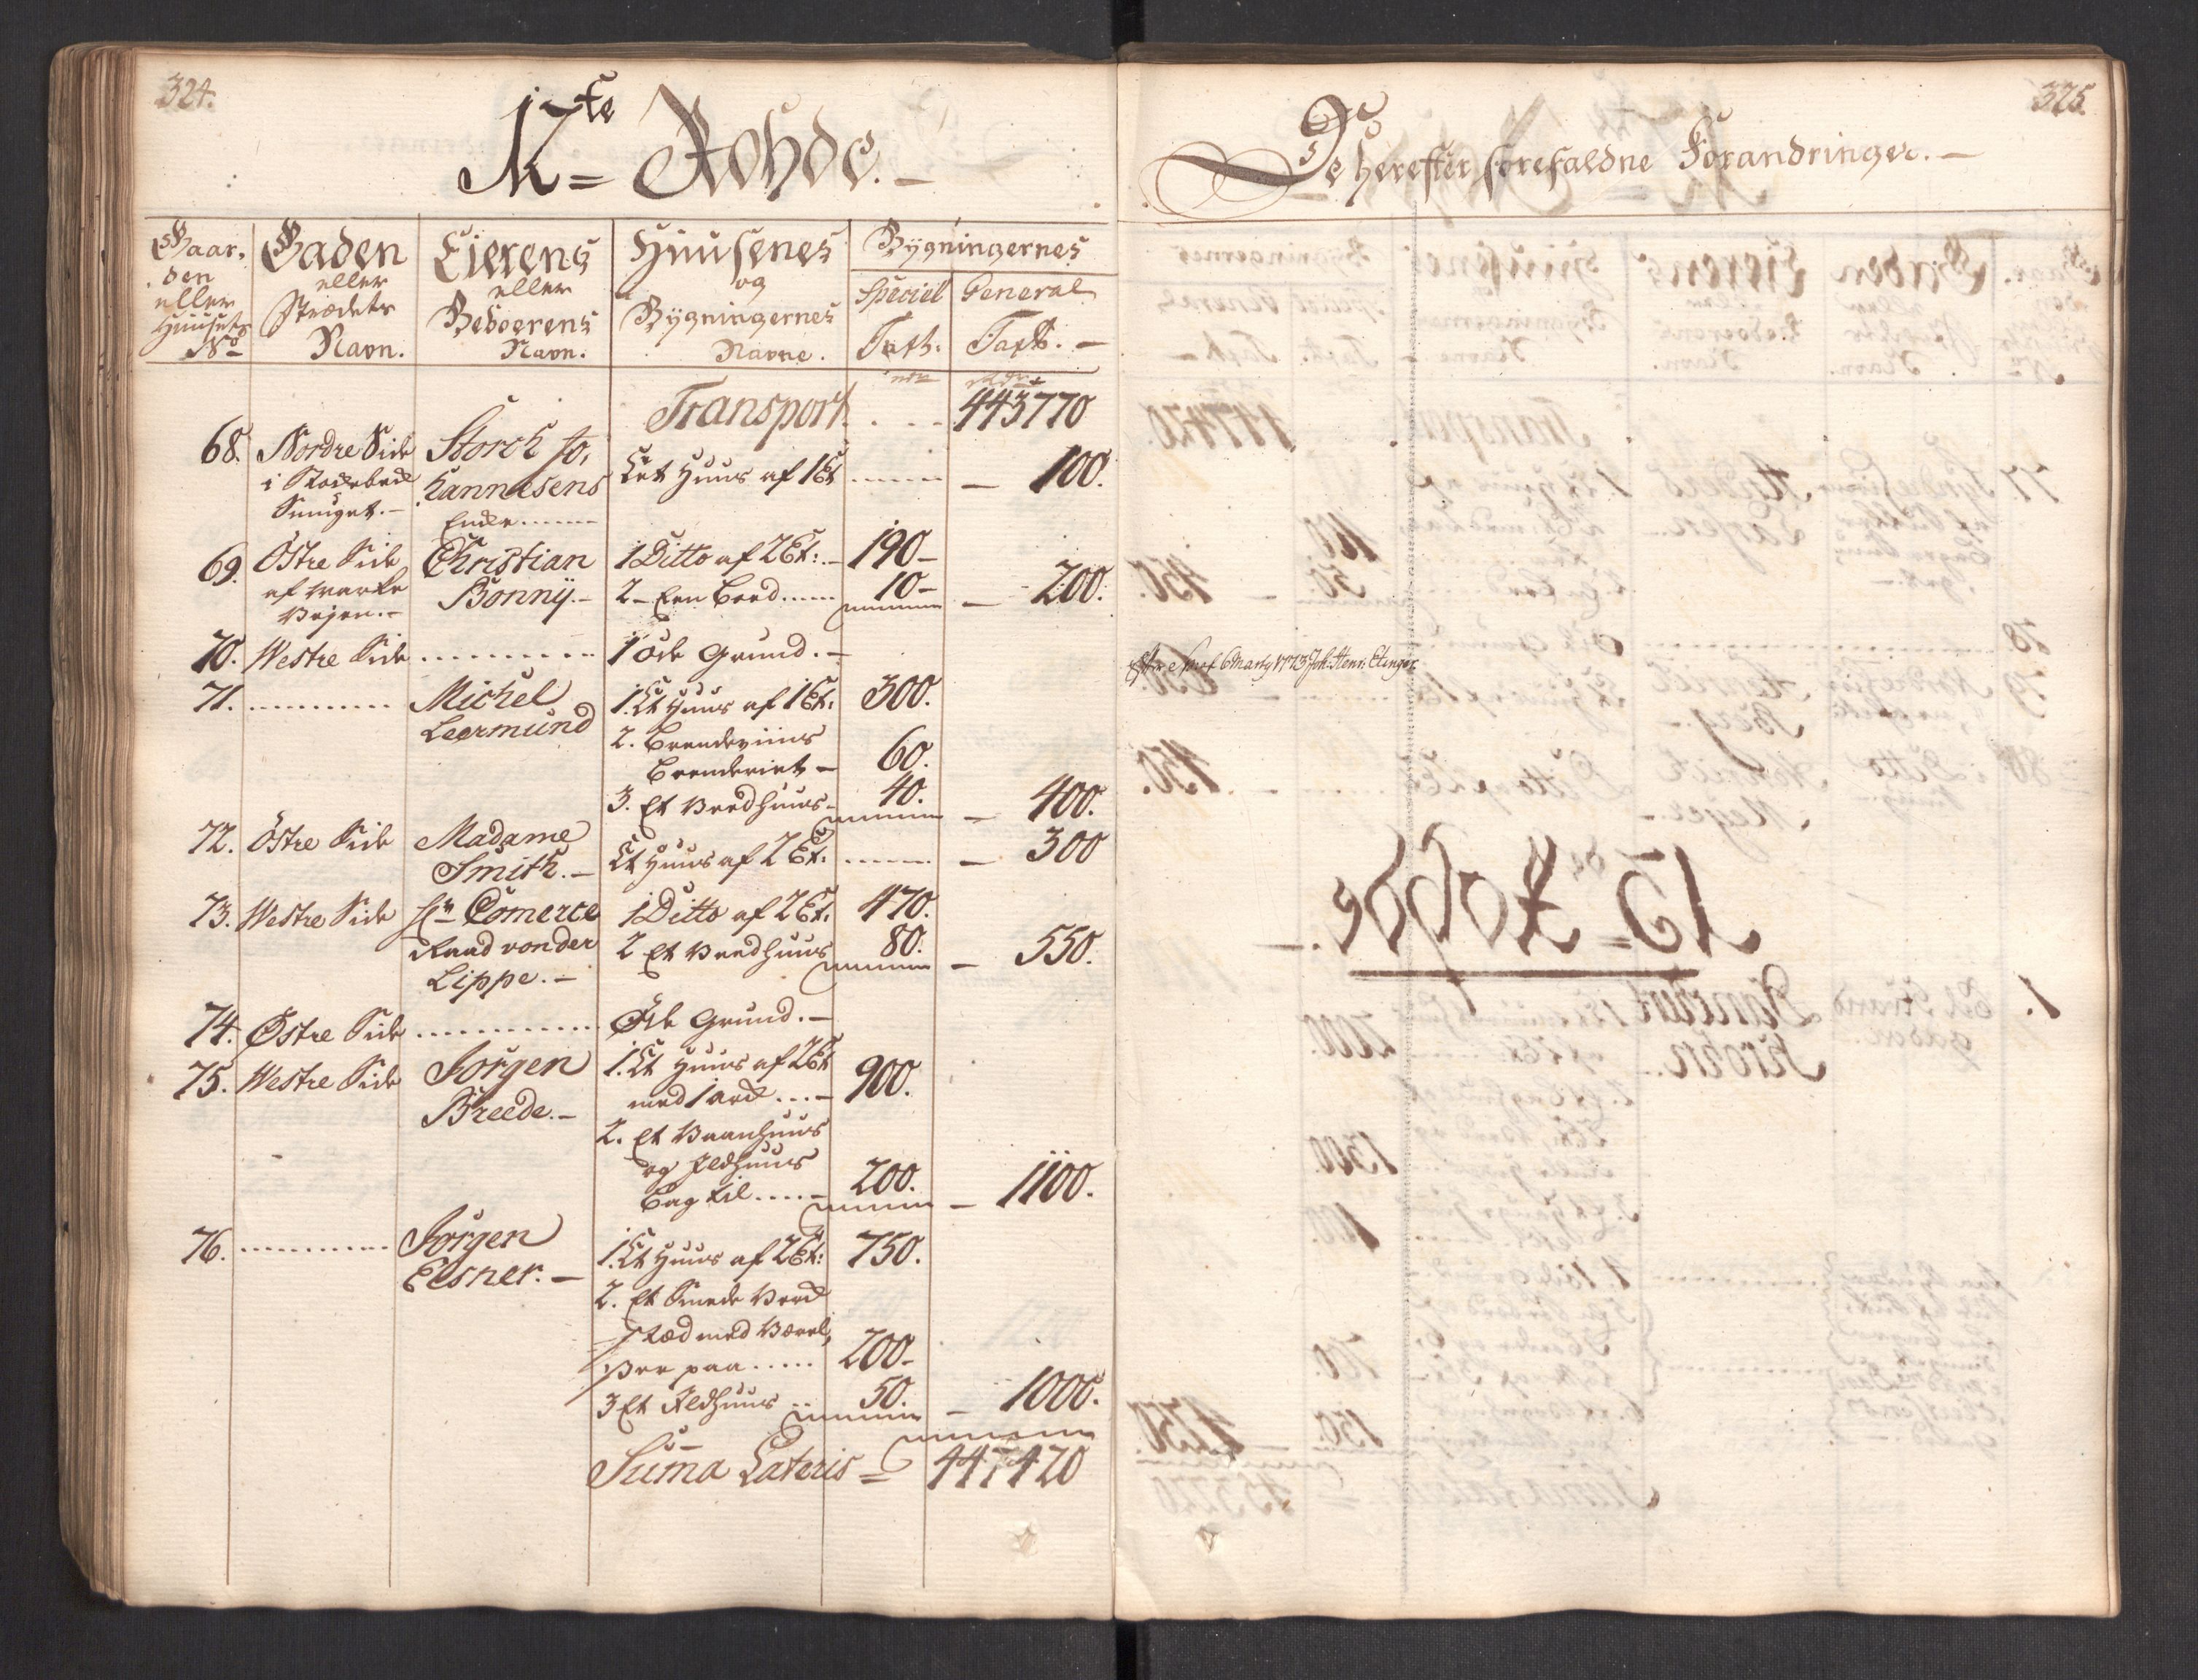 324.
17te Rohde.
Gaar-
den
eller
Huusets
No
Gaden
eller
Strædets
Navn.
Eierens
eller
Beboerens
Navn.
Huusenes
og
Bygningernes
Navne.
Bygningernes
Speciel
Taxt.
General
Taxt.
Transport . . . 443770
68. Nordre Side Storch Jo-
i hannesens Et Huus af 1 Et ...... — 100.
Smuget. — Enke ......
69. Östre Side Christian 1 Ditto af 2 Et: .. 190 —
af Marke Bonny. — 2 — Een Boed ...... 10 — — 200.
Vejen. —
70. Westre Side .......... 1 öde Grund. —
71. .......... Michel 1. Et Huus af 1 Et: 300.
Leermund 2. Brendeviins
Brenderiet — 60.
3. Et Vedhuus — 40. — 400.
72. Östre Side Madame
Smith. — Et Huus af 2 Et: ...... — 300
73. Westre Side Hr Comerce 1 Ditto af 2 Et. 470.
Raad von der 2 Et Vedhuus 80. — 550.
Lippe. —
74. Östre Side .......... Öde Grund. —
75. Westre Side Jörgen 1. Et Huus af 2 Et
Breede. — med 1 Ark ... — 900.
2. Et Vaanhuus
og Ildhuus
bag til .... — 200. — 1100.
76. .......... Jörgen 1. Et Huus af 2 Et: 750.
Elsner. — 2. Et Smede Verk
sted med Værel-
ser paa ..... 200 —
3 Et Ildhuus .. 50. — 1000.
Suma Lateris = 447420
325.
De herefter forefaldne Forandringer. —
6 Marty 1773 Joh: Henr: Etinger